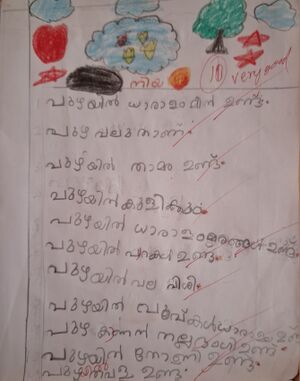 നിയ 10 very good
പുഴയിൽ ധാരാളം മീൻ ഉണ്ട്.
പുഴ വലുതാണ്.
പുഴയിൽ താമര ഉണ്ട്.
പുഴയിൽ കുളിക്കും.
പുഴയിൽ ധാരാളം ഉണ്ട്.
പുഴയിൽ പാറകൾ ഉണ്ട്.
പുഴയിൽ വല വീശി.
പുഴയിൽ
പുഴ കാണാൻ നല്ല ഭംഗി ഉണ്ട്.
പുഴയിൽ തോണി ഉണ്ട്.
ഉണ്ട്.